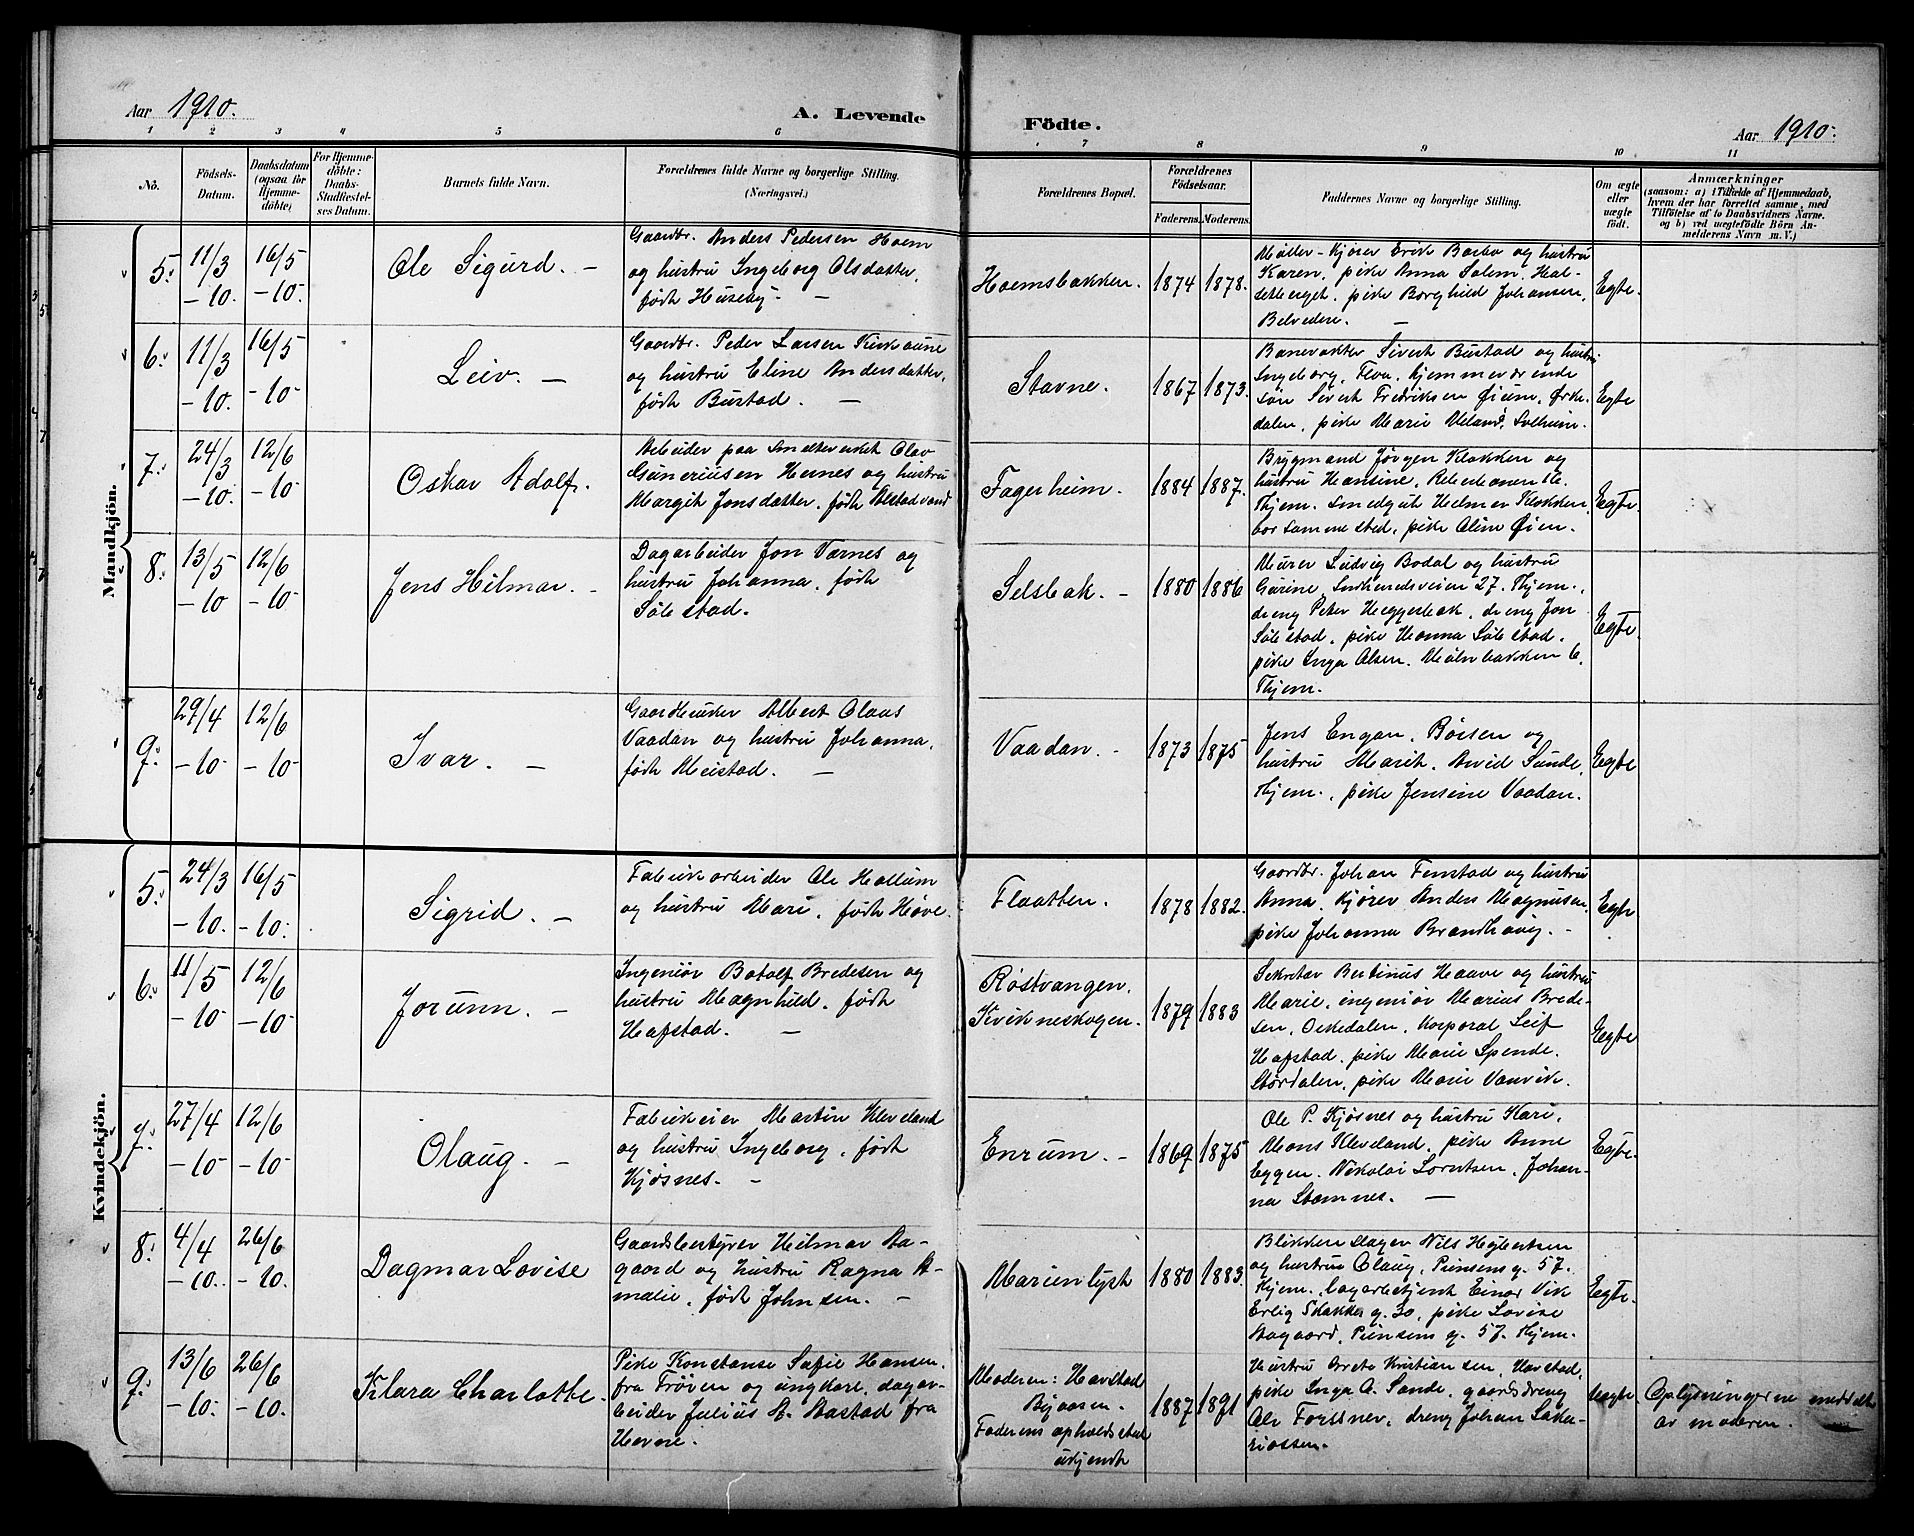 Aar 1910.
A. Levende
Födte.
Aar 1910.
1 2 3 4 5 6 7 8 9 10 11
No.
Födsels-
Datum.
Daabsdatum
(ogsaa for
Hjemme-
døbte)
For Hjemme-
døbte:
Daabs-
Stadfæstel-
ses Datum.
Barnets fulde Navn.
Forældrenes fulde Navne og borgerlige Stilling.
(Næringsvei.)
Forældrenes Bopæl.
Forældrenes
Födselsaar.
Faderens. Moderens.
Faddernes Navne og borgerlige Stilling.
Om ægte
eller
uægte
født.
Anmærkninger
(saasom: a) i Tilfælde af Hjemmedaab,
hvem der har forrettet samme, med
Tilföielse af to Daabsvidners Navne.
og b) ved uægtefödte Börn An-
melderens Navn m. V.)
Mandkjön.
5. 11/3 -10. 16/5 -10.
Ole Sigurd. -
Gaardbr. Anders Pedersen Hoem
og hustru Ingeborg Olsdatter,
født Huseby. -
Hoemsbakken.
1874 1878.
Møller-Kjører Erik Barbo og hustru
Karen, pike Anna Solem, Hal-
setberget, pike Borghild Johansen,
Belvedere. -
Egte.
6. 11/3 -10. 16/5 -10-
Leiv. -
Gaardbr. Peder Larsen Kirkaune
og hustru Eline Andersdatter,
født Bustad. -
Stavne.
1867 1873.
Banevokter Sivert Bustad og hustru
Ingeborg, Flåa, hjemmeværende
søn Sivert Fredriksen Øium, Ørke-
dalen, pike Marie Meland, Solheim.
Egte
7. 24/3 -10. 12/6 -10
Oskar Adolf.
Arbeider paa Smelteverket Olav
Guneriussen Hernes og hustru
Margit Jonsdatter, født Alstadvand
Fagerheim.
1884 1887.
Brygmand Jørgen Klokken og
hustru Hansine,
Thjem. Smedgut Helmer Klokken,
bor sammested, pike Oline Øien.
Egte.
8. 13/5 -10 12/6 -10-
Jens Hilmar. -
Dagarbeider Jon Værnes og
hustru Johanna, født
Sølestad.
Selsbak. -
1880 1886
Murer Ludvig Bodal og hustru
Gurine, 27. Thjem.,
dreng Peter Heggerbak, dreng Jon
Sølestad, pike Hanna Sølestad,
pike Inga Olsen, Mølnbakken 6,
Thjem.
Egte.
9. 29/4 -10- 12/6 -10-
Ivar. -
Gaardbruker Albert Claas
Vaadan og hustru Johanna,
født Meistad. -
Vaadan. -
1873 1875
Jens Engan, Børsen og
hustru Marit, Arvid Sunde,
Thjem., pike Jensine Vaadan.
Egte
Kvindekjön.
5. 24/3 -10. 16/5 -10.
Sigrid. -
Fabrikarbeider Ole Hollum
og hustru Mari, født Hove.
Flaatten.
1878 1882.
Gaardbr. Johan Fenstad og hustru
Anna, Kjører Anders Magnusen,
pike Johanna Brandhaug. -
Egte
6. 11/5 -10- 12/6 -10-
Jorunn. -
Ingeniør Botolf Bredesen og
hustru Magnhild, født
Hafstad. -
Røstvangen,
Kvikneskogen.
1879 1883
Sekretær Bertinus Haave og hustru
Marie, ingeniør Marius Brede-
sen, Orkedalen, Korporal Leif
Hafstad, pike Marie Spende,
Størdalen, pike Marie Vanvik.
Egte
7. 27/4 -10- 12/6 -10-
Olaug. -
Fabrikeier Martin Kleveland
og hustru Ingeborg, født
Kjøsnes. -
Enrum. -
1869 1875
Ole P. Kjøsnes og hustru Kari,
Mons Kleveland, pike Anne
Eggen, Nikolai Lorntsen, Johan-
na Stamnes. -
Egte.
8. 4/4 -10. 26/6 -10.
Dagmar Lovise
Gaardsbestyrer Hilmar Aa-
gaard og hustru Ragna A-
malie, født Johnsen. -
Marienlyst
1880 1883.
Blikkenslager Nils Hybertsen
og hustru Olaug, Prinsens g. 57.
Thjem., lagerbetjent Einar Vik
Erling Skakkes g. 30, pike Lovise
Aagaard, Prinsens g. 57. Thjem.
Egte.
9. 13/6 -10- 26/6 -10.
Klara Charlotte.
Pike Konstanse Sofie Hansen,
fra Trøien og ungkarl, dagar-
beider Julius A. Aastad fra
Hevne.
Moderen: Havstad
Byaasen.
Faderens opholdssted
ukjendt
1887 1891
Hustru Berte Kristiansen, Havstad,
pike Inga O. Sande, gaardsdreng
Ole Forssner, dreng Johan Saka-
riassen.
Uegte
Oplysningerne meddelt
av moderen.